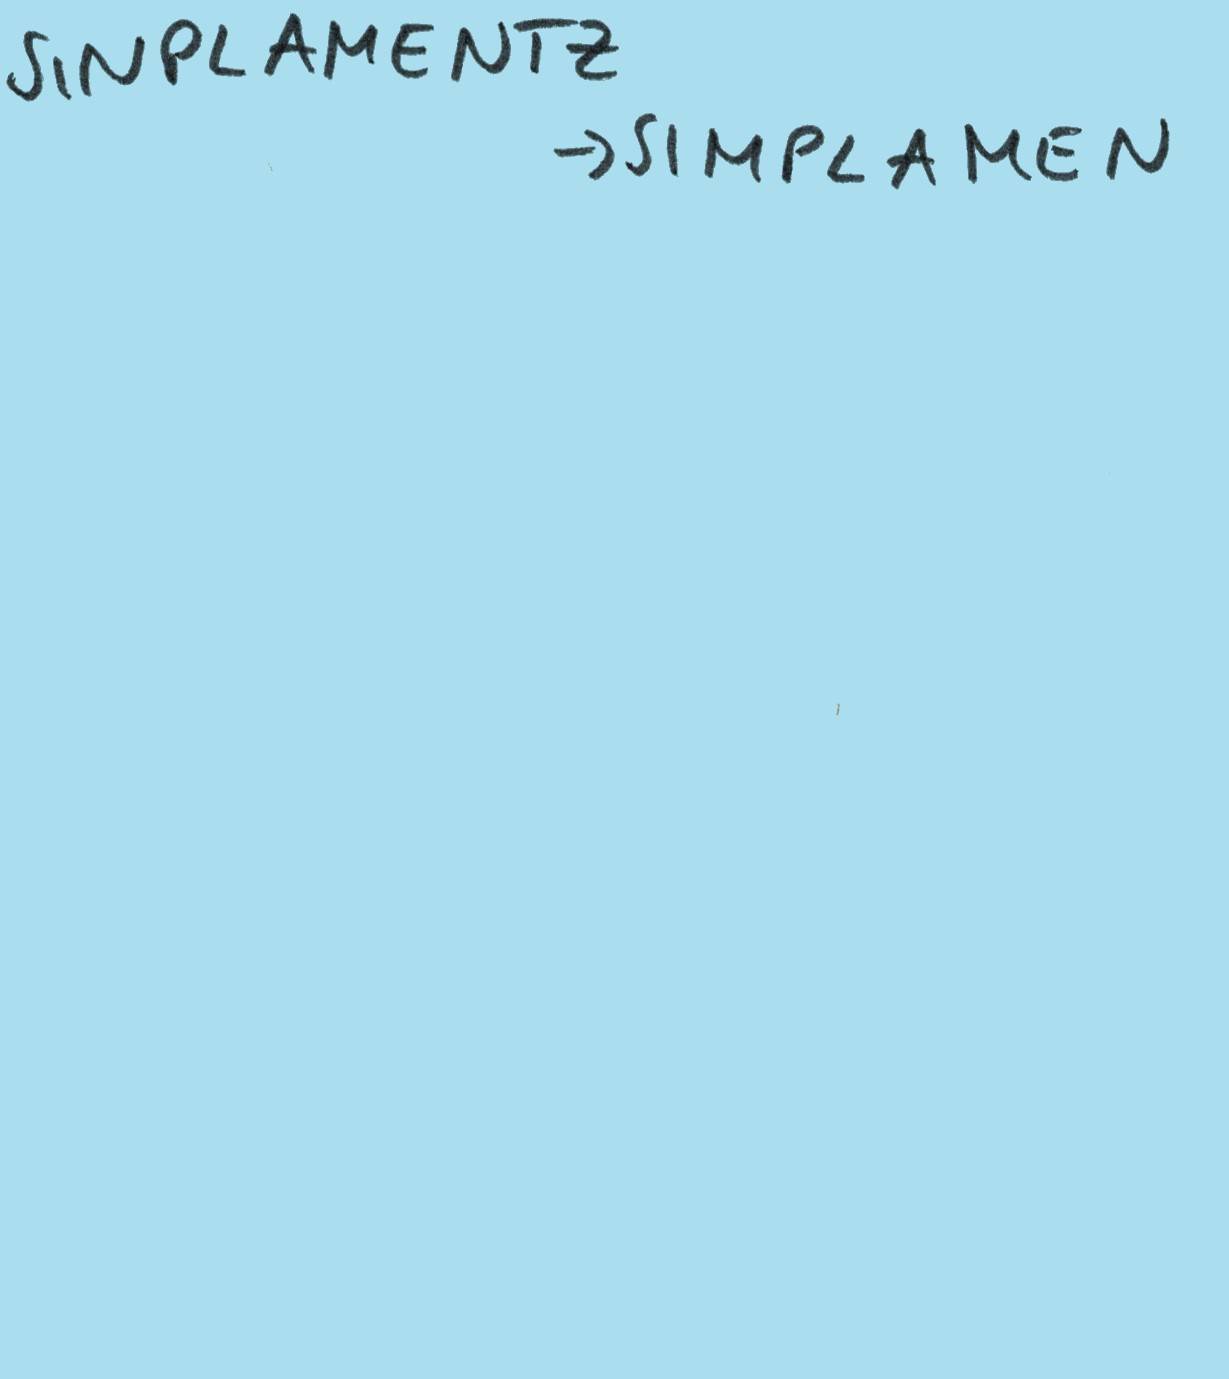 SINPLAMENTZ
→SIMPLAMEN